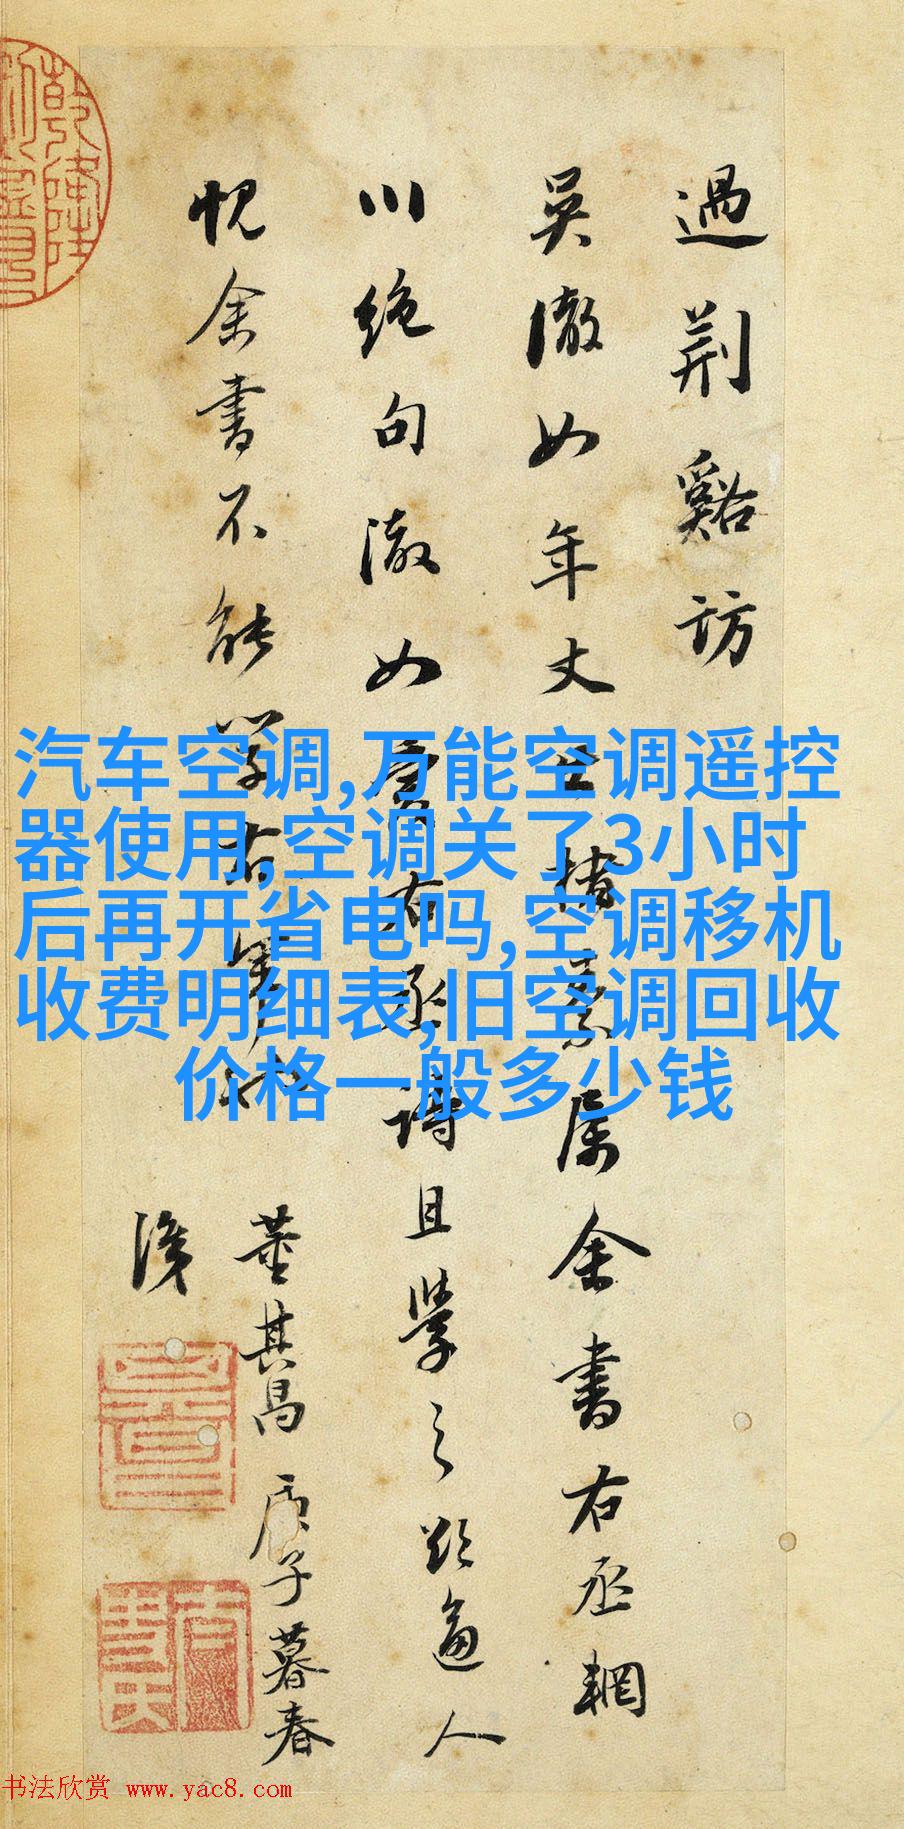 過荆谿訪
吳澈如年丈
屬余書右丞輞
川絶句澈如
右丞詩且學之欲逼人
愧余書不能學右
董其昌
庚子暮春
識
汽车空调,万能空调遥控
器使用,空调关了3小时
后再开省电吗,空调移机
收费明细表,旧空调回收
价格一般多少钱
书法欣赏 www.yac8.com